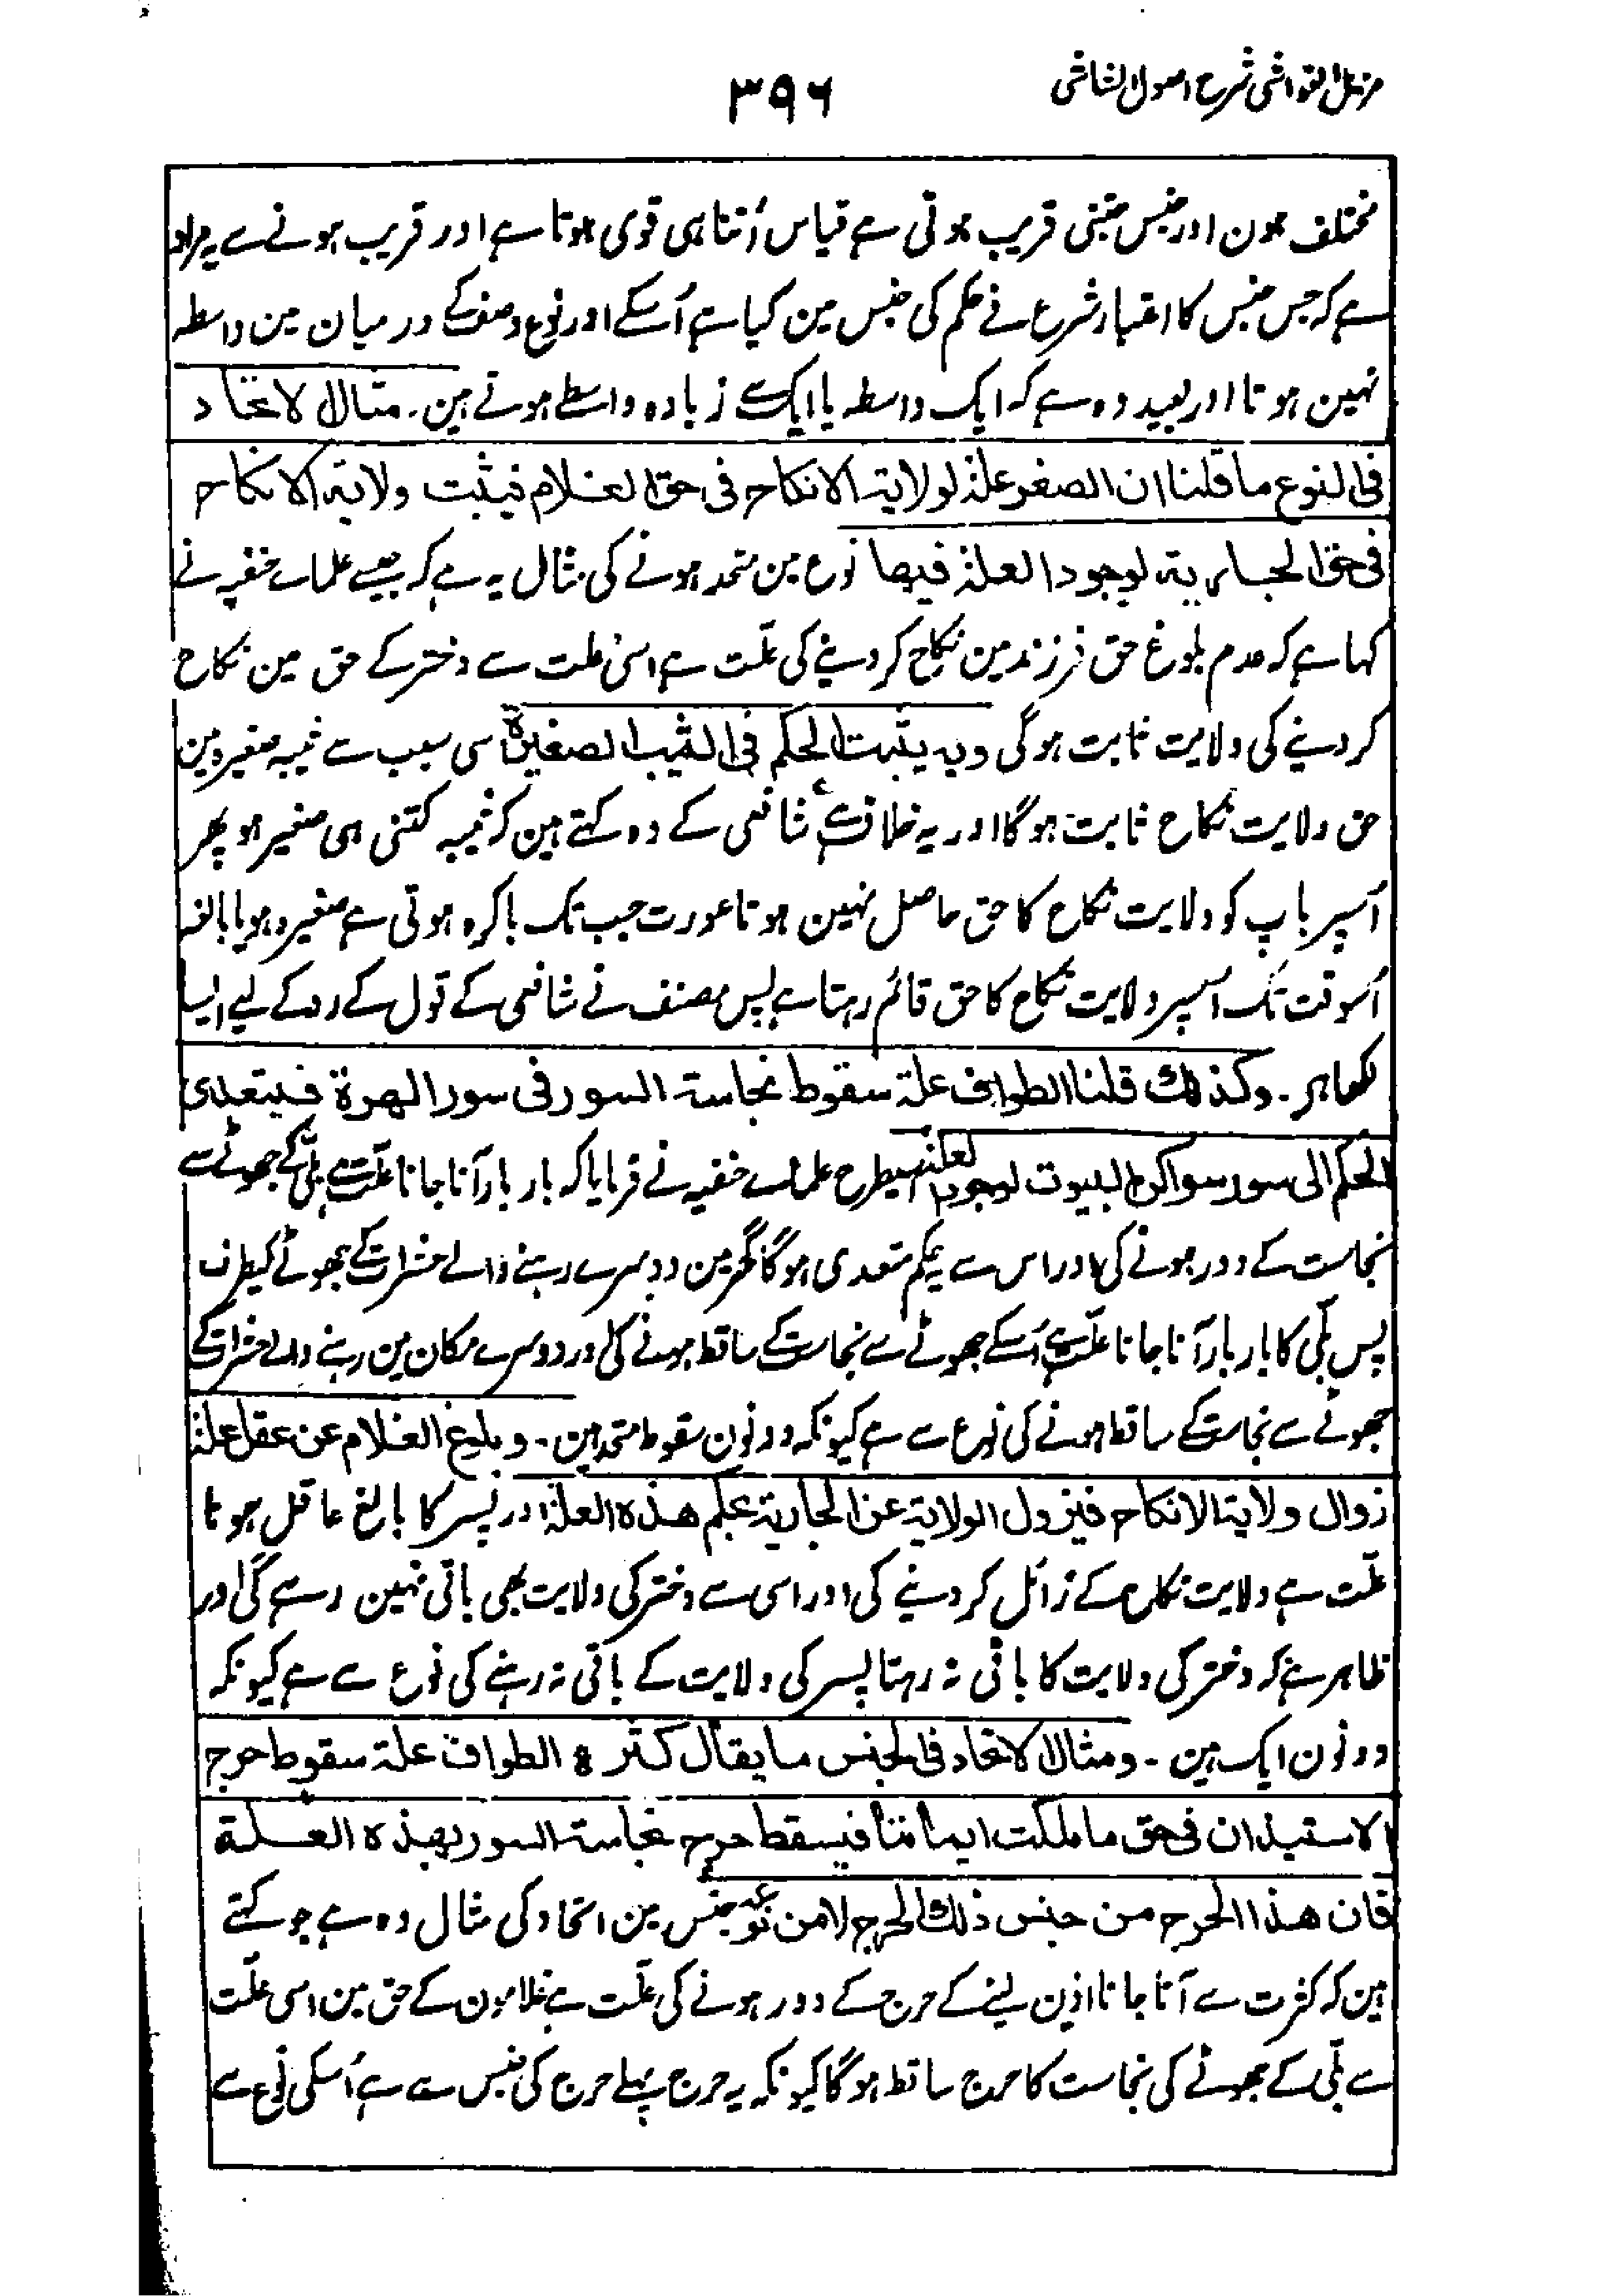 مزیل الغواشی شرح اصول الشاشی
۳۹۶
مختلف ہون اور جنس جتنی قریب ہوتی ہے قیاس اُتنا ہی قوی ہوتا ہے اور قریب ہونے سے یہ مراد
ہے کہ جس جنس کا اعتبار شرع نے حکم کی جنس مین کیا ہے اُسکے اور نوع وصف کے درمیان مین واسطہ
نہین ہوتا اور بعید وہ ہے کہ ایک واسطہ یا ایک سے زیادہ واسطے ہوتے ہین۔ مثال الاتحاد
فی النوع ما قلنا ان الصغر علة لولایة الانکاح فی حق الغلام فیثبت ولایة الانکاح
فی حق الجاریة لوجود العلة فیھا نوع مین متحد ہونے کی مثال یہ ہے کہ جیسے علماے حنفیہ نے
کہا ہے کہ عدم بلوغ حق فرزند مین نکاح کر دینے کی علّت ہے اسی علت سے دختر کے حق مین نکاح
کر دینے کی ولایت ثابت ہوگی وبہ یثبت الحکم فی الثیب الصغیرة اسی سبب سے ثیبہ صغیرہ مین
حق ولایت نکاح ثابت ہوگا اور یہ خلاف ہے شافعیؒ کے وہ کہتے ہین کہ ثیبہ کتنی ہی صغیر ہو پھر
اُسپر باپ کو ولایت نکاح کا حق حاصل نہین ہوتا عورت جب تک باکرہ ہوتی ہے صغیرہ ہو یا بالغہ
اُسوقت تک اُسپر ولایت نکاح کا حق قائم رہتا ہے پس مصنف نے شافعی کے قول کے رد کے لیے ایسا
لکھا ہے۔ وکذلک قلنا الطواف علة سقوط نجاسة السور فی سور الھرة فیتعدی
الحکم الی سور سواکن البیوت لوجود العلة اسیطرح علماے حنفیہ نے فرمایا کہ بار بار آنا جانا علّت ہے بلّی کے جھوٹے سے
نجاست کے دور ہونے کی اور اس سے یہ حکم متعدی ہوگا گھر مین دوسرے رہنے والے حشرات کے جھوٹے کیطرف
پس بلّی کا بار بار آنا جانا علّت ہے اُسکے جھوٹے سے نجاست کے ساقط ہونے کی اور دوسرے مکان مین رہنے والے حشرات کے
جھوٹے سے نجاست کے ساقط ہونے کی نوع سے ہے کیونکہ دونون سقوط متحد ہین۔ وبلوغ الغلام عن عقل علة
زوال ولایة الانکاح فیزول الولایة عن الجاریة بحکم ھذہ العلة اور پسر کا بالغ عاقل ہونا
علّت ہے ولایت نکاح کے زائل کر دینے کی اور اسی سے دختر کی ولایت بھی باقی نہین رہے گی اور
ظاہر ہے کہ دختر کی ولایت کا باقی نہ رہنا پسر کی ولایت کے باقی نہ رہنے کی نوع سے ہے کیونکہ
دونون ایک ہین۔ ومثال الاتحاد فی الجنس ما یقال کثرة الطواف علة سقوط حرج
الاستیذان فی حق ما ملکت ایماننا فیسقط حرج نجاسة السور بھذہ العلة
فان ھذا الحرج من جنس ذلک الحرج لا من نوعہ جنس مین اتحاد کی مثال وہ ہے جو کہتے
ہین کہ کثرت سے آنا جانا اذن لینے کے حرج کے دور ہونے کی علّت ہے غلامون کے حق مین اسی علّت
سے بلّی کے جھوٹے کی نجاست کا حرج ساقط ہوگا کیونکہ یہ حرج پہلے حرج کی جنس سے ہے اُسکی نوع سے